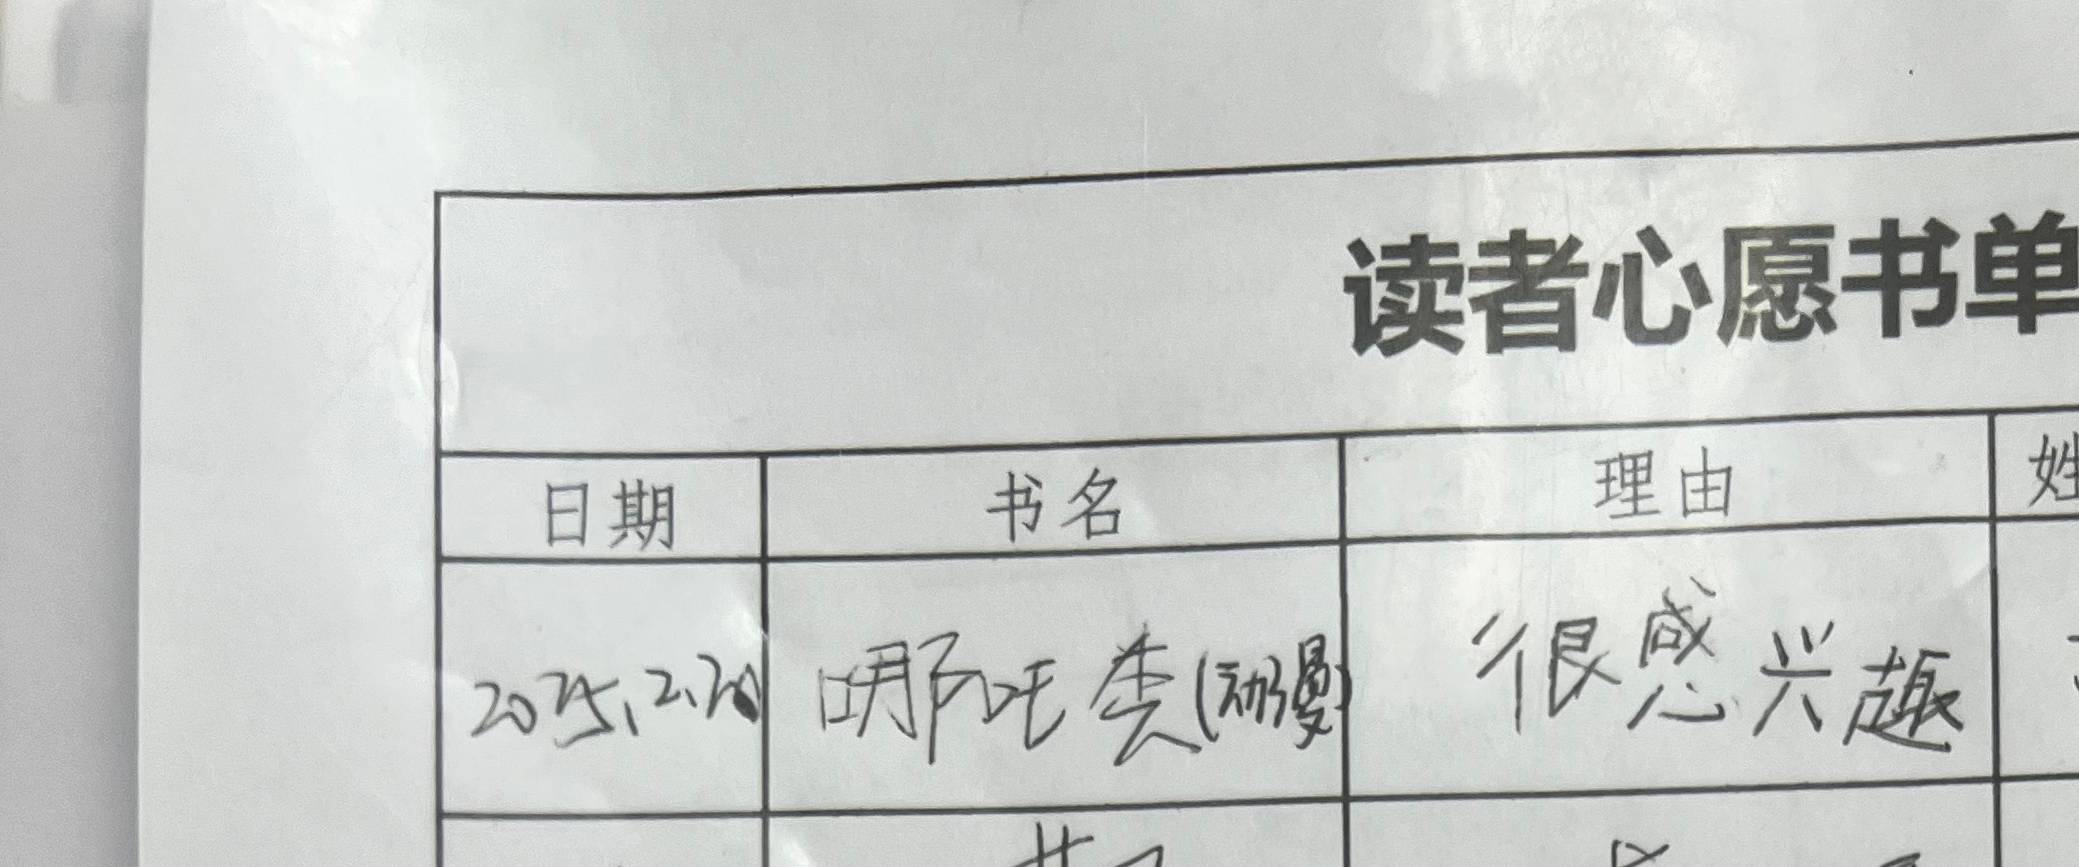 读者心愿书单
日期 书名 理由 姓
2025.2.20 哪吒类(动漫) 很感兴趣